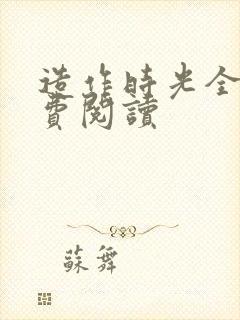 造作時光全
費閱讀
蘇舞